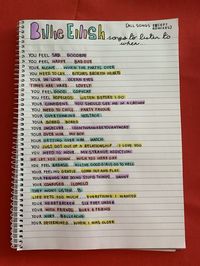 Billie Eilish songs to listen to when...
(ALL SONGS
YOU FEEL SAD: GOODBYE
YOU FEEL HAPPY: BAD GUY
YOUR ALONE: WHEN THE PARTYS OVER
YOU NEED TO CRY: BITCHES BROKEN HEARTS
YOUR IN LOVE: OCEAN EYES
TIMES ARE HARD: LOVELY
YOU FEEL GOOD: COPYCAT
YOU FEEL HOPELESS: LISTEN BEFORE I GO
YOUR CONFIDENT: YOU SHOULD SEE ME IN A CROWN
YOU NEED TO CHILL: PARTY FAVOUR
YOUR OVERTHINKING: HOSTAGE
YOUR BORED: BORED
YOUR INSECURE: IDONTWANNABEYOUANYMORE
YOUR OVER HIM: MY BOY
YOUR GETTING OVER HIM: WATCH
YOU JUST GOT OUT OF A RELATIONSHIP: I LOVE YOU
YOU NEED TO MOVE: MY STRANGE ADDICTION
HE LET YOU DOWN: WISH YOU WERE GAY
YOU FEEL BADASS: ALL THE GOOD GIRLS GO TO HELL
YOU FEEL
YOUR FRIENDS ARE BEING STUPID: XANNY
YOUR CONFUSED: ILOMILO
THEY WONT LISTEN: 8
LIFE GETS TOO MUCH: EVERYTHING I WANTED
YOUR HEARTBROKEN: SIX FEET UNDER
YOUR WITH FRIENDS: BURY A FRIEND
YOUR HURT: BELLYACHE
YOUR DETERMINED: WHEN I WAS OLDER